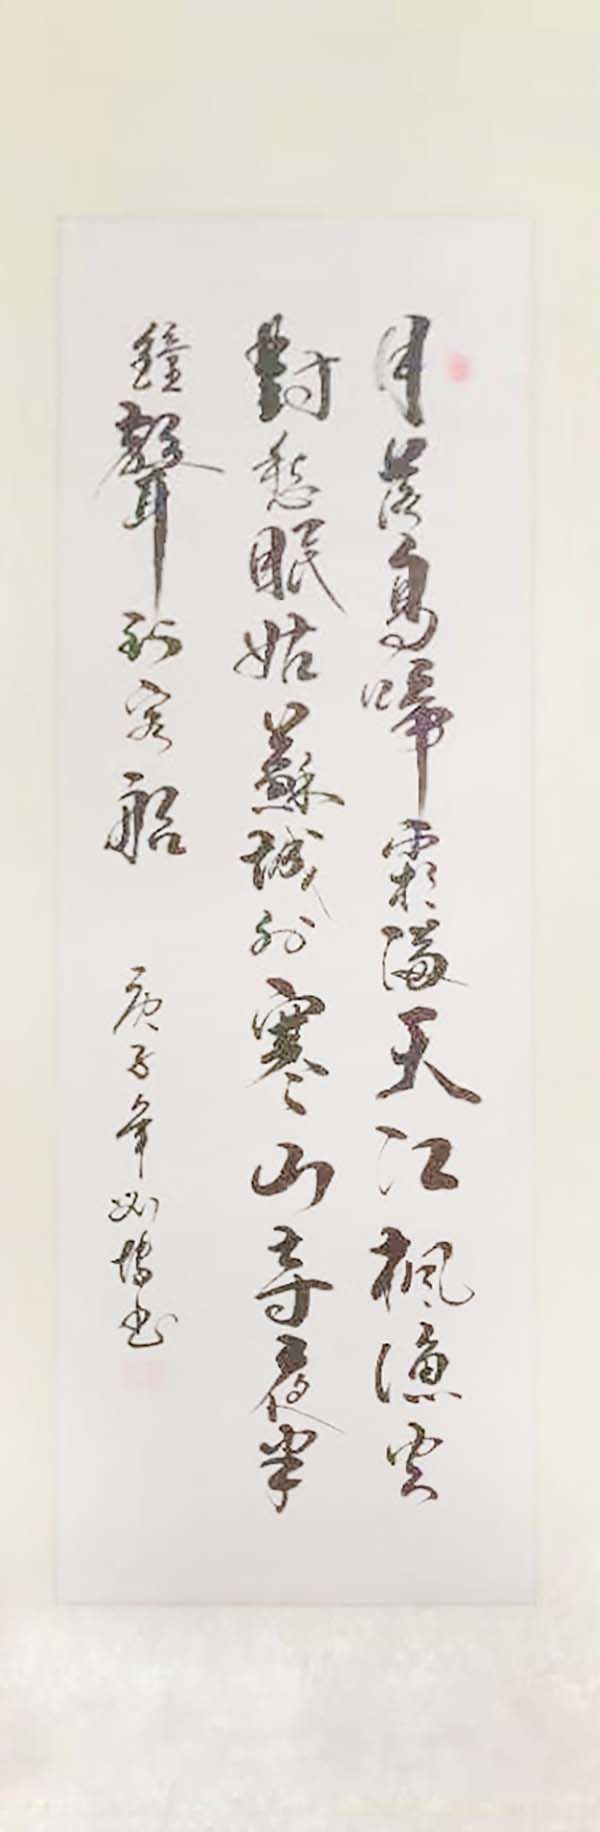 月落烏啼霜滿天江楓漁火
對愁眠姑蘇城外寒山寺夜半
鐘聲到客船 庚子年刘书